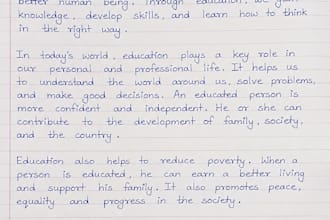 better human being. Through education, we gain
knowledge, develop skills, and learn how to think
in the right way.
In today's world, education plays a key role in
our personal and professional life. It helps us
to understand the world around us, solve problems,
and make good decisions. An educated person is
more confident and independent. He or she can
contribute to the development of family, society,
and the country.
Education also helps to reduce poverty. When a
person is educated, he can earn a better living
and support his family. It also promotes peace,
equality and progress in the society.